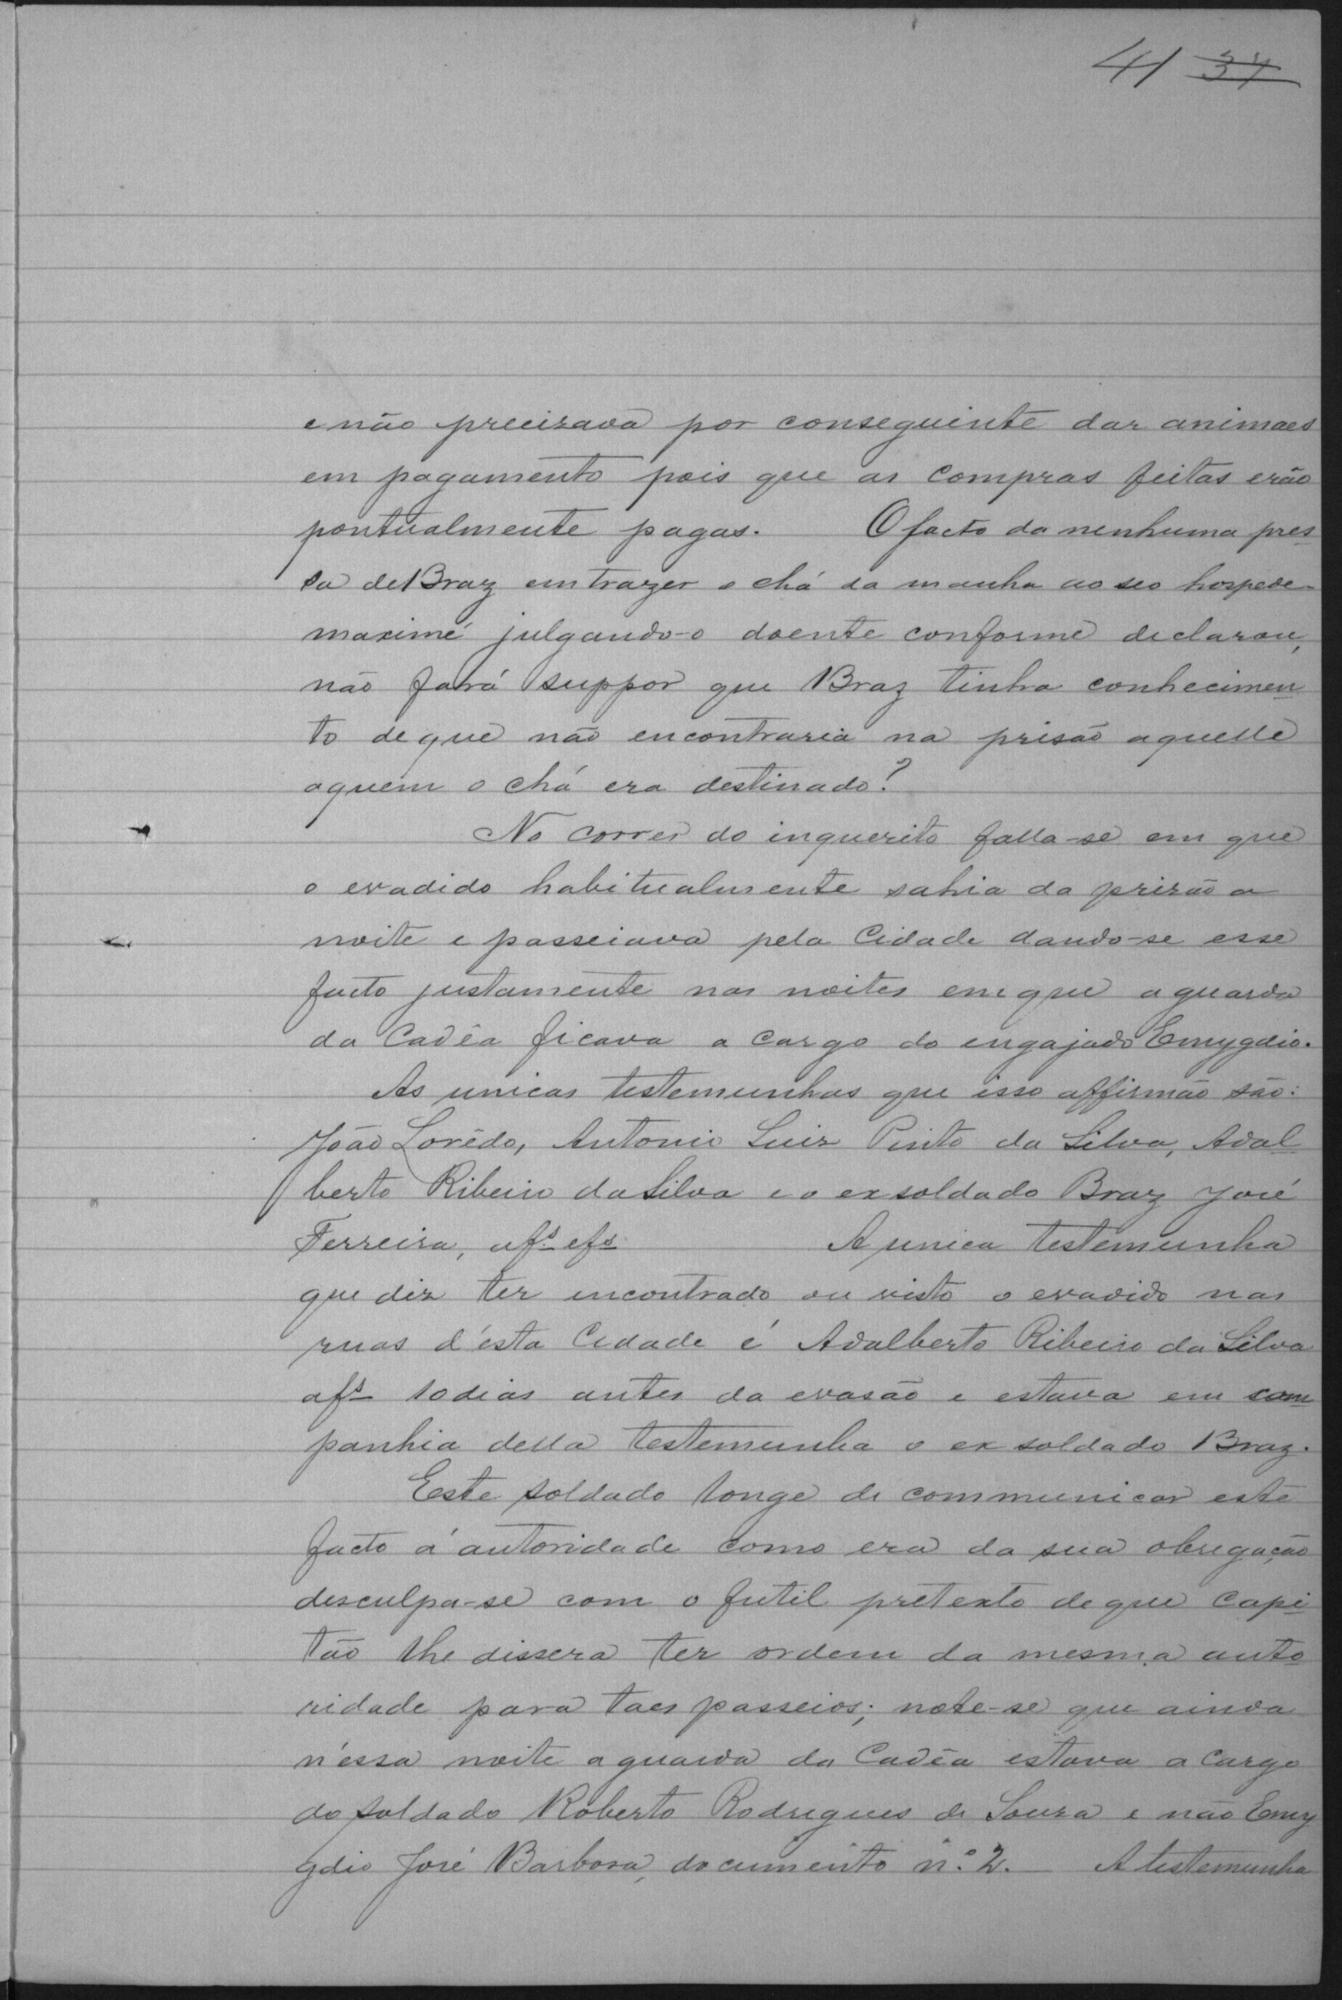 41 37
e não precizava por conseguinte dar animaes
em pagamento pois que as compras feitas erão
pontualmente pagas. O facto da nenhuma pres-
sa de Braz em trazer o chá da manha ao seo hospede
maximé julgando-o doente conforme declarou,
não fará suppor que Braz tinha conhecimen
to de que não encontraria na prisão aquelle
aquem o chá era destinado?
No correr do inquerito falla-se em que
o evadido habitualmente sahia da prizão a
noite e passeiava pela Cidade dando-se esse
facto justamente nas noites em que a guarda
da Cadêa ficava a cargo do engajado Emygdio.
As unicas testemunhas que isso affirmão são:
João Lorêdo, Antonio Luiz Pinto da Silva, Adal
berto Ribeiro da Silva e o ex soldado Braz José
Ferreira, afs efs A unica testemunha
que diz ter encontrado ou visto o evadido nas
ruas d'esta Cidade é Adalberto Ribeiro da Silva
afs 10 dias antes da evasão e estava em com
panhia della testemunha o ex soldado Braz.
Este soldado longe de communicar este
facto á autoridade como era da sua obrigação
desculpa-se com o futil pretexto de que Capi
tão lhe dissera ter ordem da mesma auto
ridade para taes passeios; note-se que ainda
n'essa noite a guarda da Cadêa estava a cargo
do soldado Roberto Rodrigues de Souza e não Emy
gdio José Barbosa, documento n.º 2. A testemunha